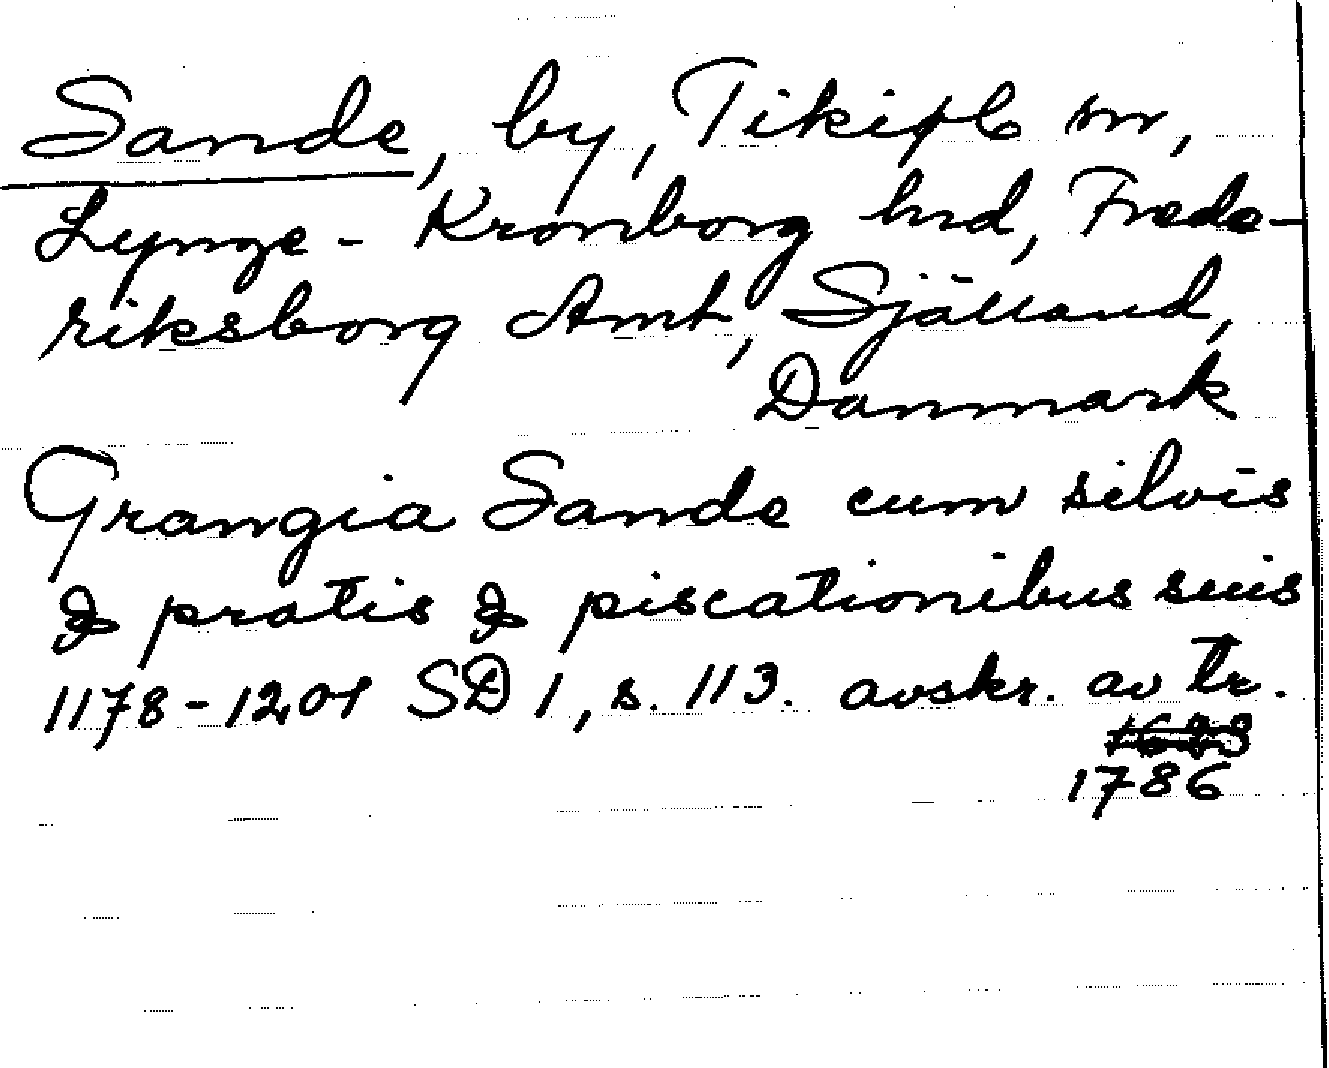 Sande, by, Tikipb sn,
Lynge - Kronborg hrd, Frede-
riksborg Amt, Själland,
Danmark
Grangia Sande cum silvis
& pratis & piscationibus suis
1178-1201 SD 1, s. 113. avskr. av tr.
1786